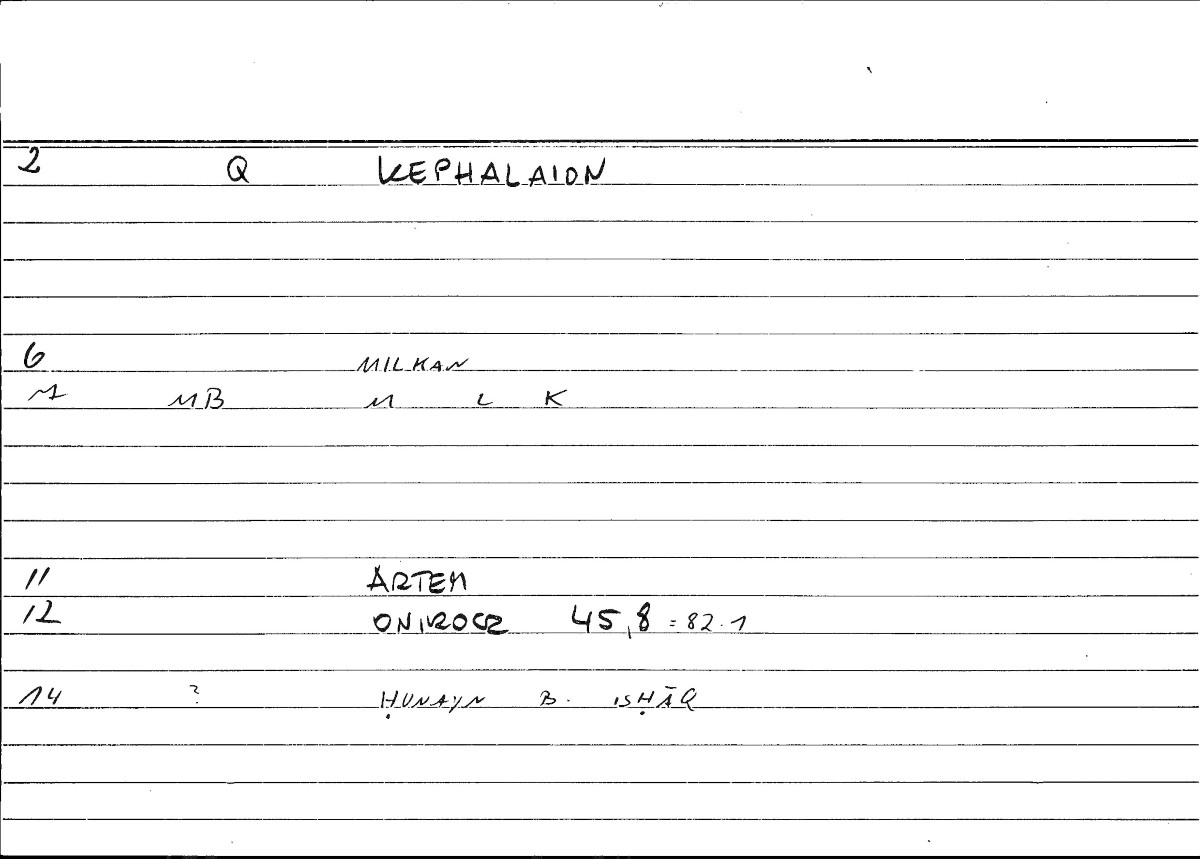 2 Q KEPHALAION
6 MILKAN
M MB M L K
11 ARTEM
12 ONIROCR 45,8 = 82.1
14 ? ḤUNAYN B. ISḤĀQ